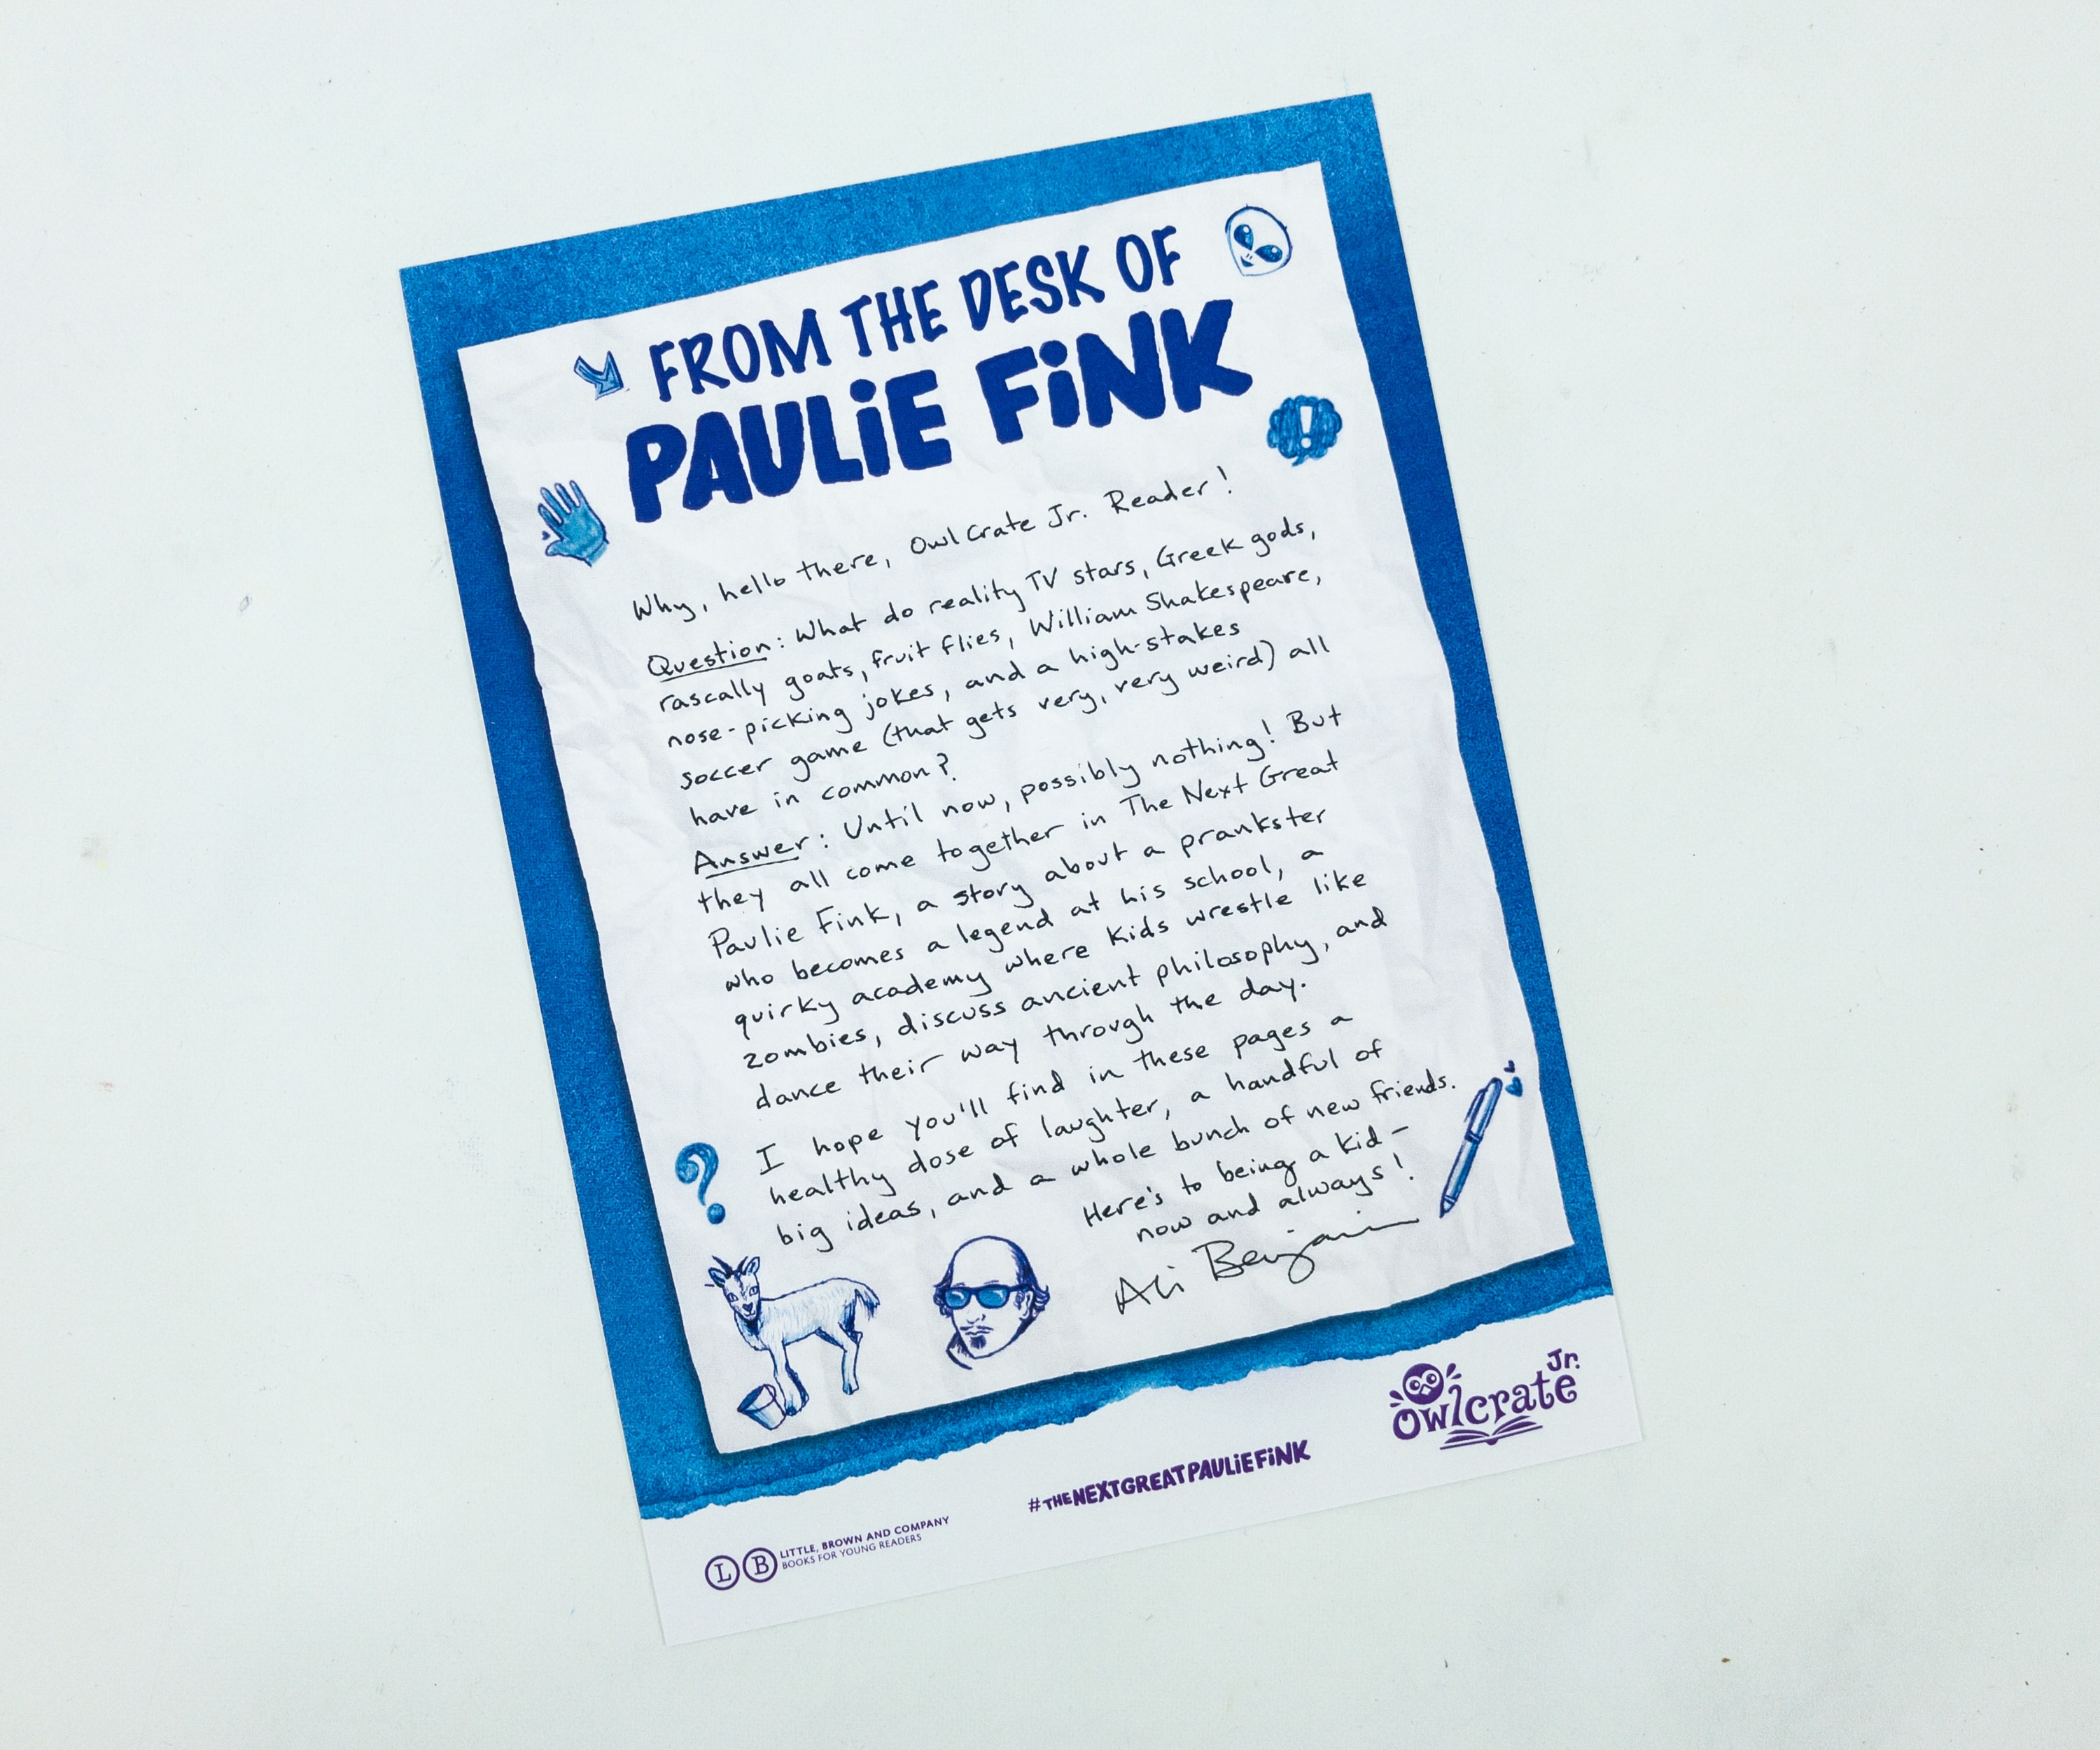 FROM THE DESK OF
PAULiE FiNK
!
Why, hello there, OwlCrate Jr. Reader!
Question: What do reality TV stars, Greek gods,
rascally goats, fruit flies, William Shakespeare,
nose-picking jokes, and a high-stakes
soccer game (that gets very, very weird) all
have in common?
Answer: Until now, possibly nothing! But
they all come together in The Next Great
Paulie Fink, a story about a prankster
who becomes a legend at his school, a
quirky academy where kids wrestle like
zombies, discuss ancient philosophy, and
dance their way through the day.
I hope you'll find in these pages a
healthy dose of laughter, a handful of
big ideas, and a whole bunch of new friends.
Here's to being a kid -
now and always!
Ali Benjamin
?
Owlcrate Jr.
#THENEXTGREATPAULiEFiNK
L B LITTLE, BROWN AND COMPANY
BOOKS FOR YOUNG READERS